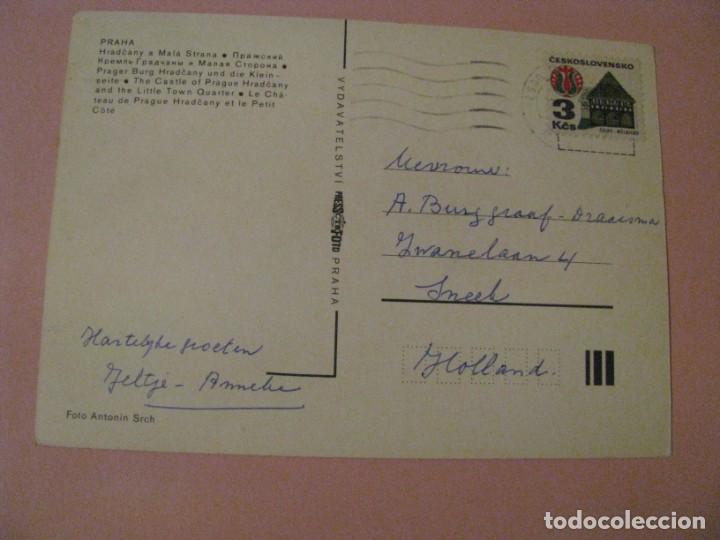 PRAHA
Hradčany a Malá Strana • Пражский
Кремль Градчаны и Малая Сторона •
Prager Burg Hradčany und die Klein-
seite • The Castle of Prague Hradčany
and the Little Town Quarter • Le Châ-
teau de Prague Hradčany et le Petit
Côté
Hartelijke groeten
Jeltje - Anneke
Foto Antonín Srch
VYDAVATELSTVÍ PRESSFOTO PRAHA
ČESKOSLOVENSKO
3
Kčs
Mevrouw:
A. Burggraaf-Draaisma
Zwanelaan 4
Sneek
Holland.
todocoleccion.net